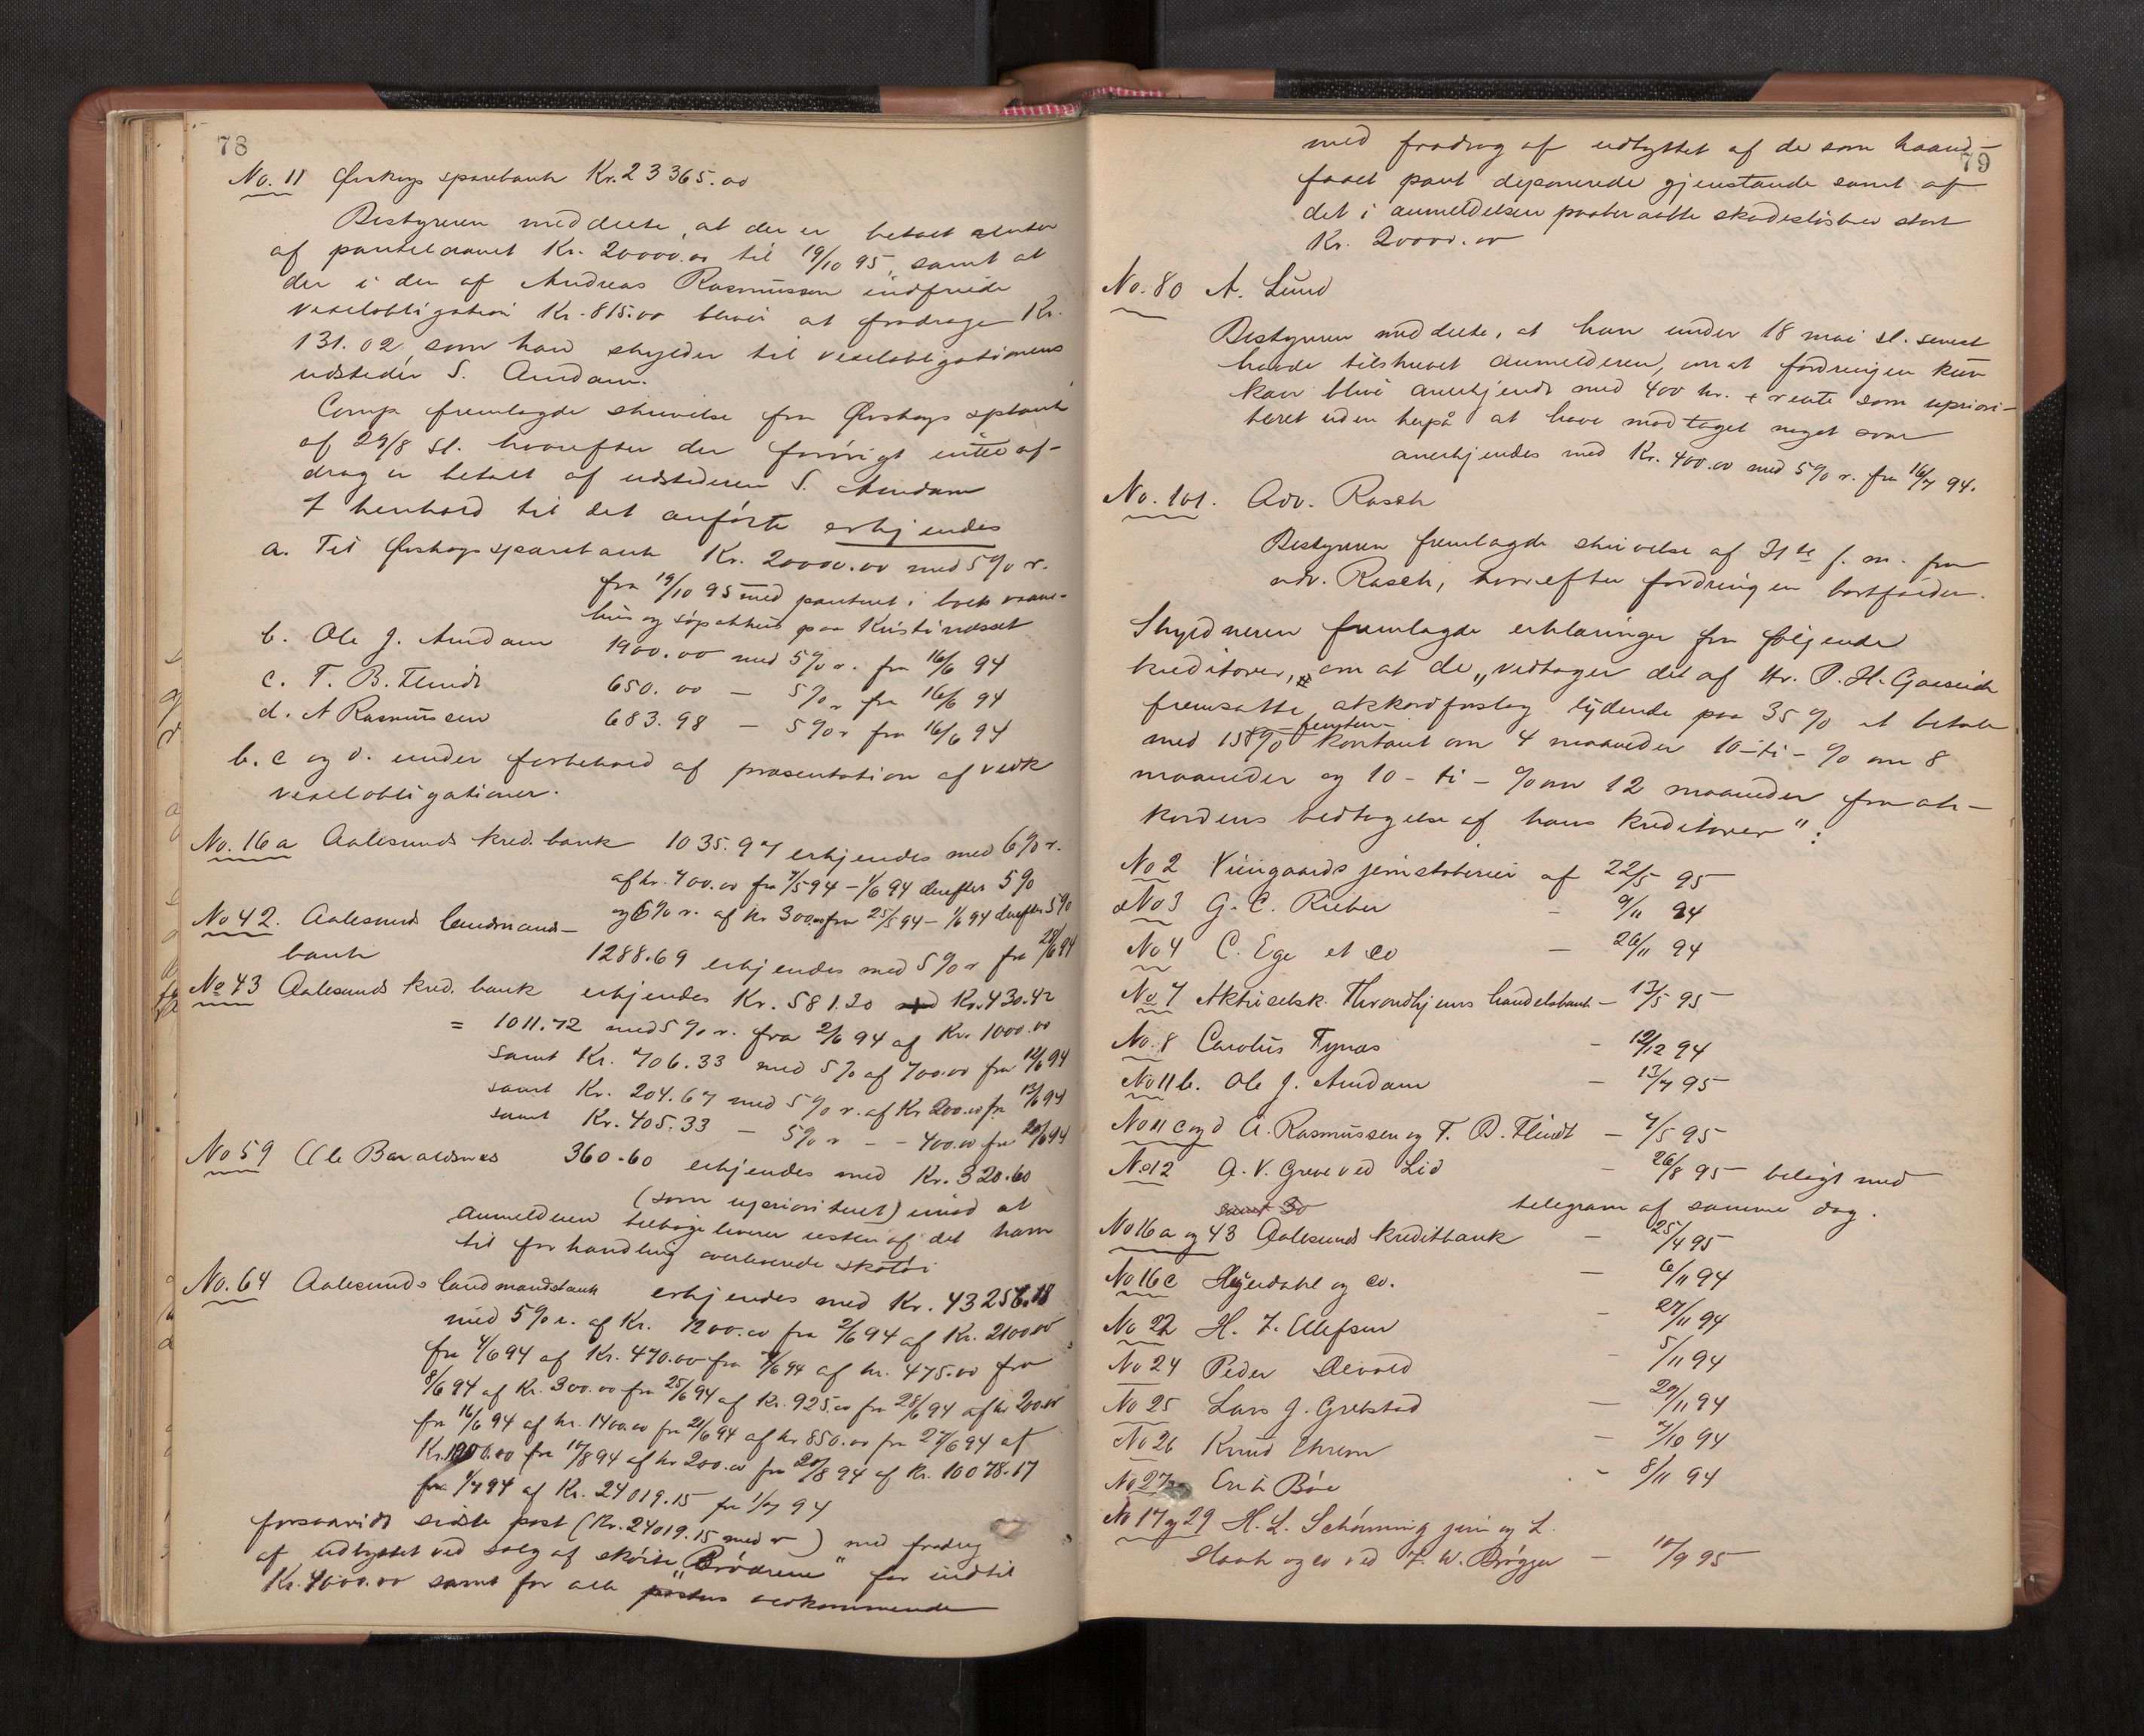 78
No. 11 Ørskogs sparebank Kr. 23365.00
Bestyreren meddelte, at der er betalt renter
af pantelaanet Kr. 20000.00 til 19/10 95, samt at
der i den af Andreas Rasmussen indfriede
vexelobligation Kr. 815.00 bliver at fradrage Kr.
131.02 som han skylder til vexelobligationens
udsteder S. Amdam.
Comp fremlagde skrivelse fra Ørskogs spbank
af 29/8 sl. hvorefter der forøvrigt intet af-
drag er betalt af udstederen S. Amdam
I henhold til det anførte erkjendes
a. Til Ørskogs sparebank Kr. 20000.00 med 5% r.
fra 19/10 95 med panteret i
hus og søpakhus paa Kristinesset
b. Ole J. Amdam 1900.00 med 5% r. fra 16/6 94
c. T. B. Flindt 650.00 — 5% r fra 16/6 94
d. A Rasmussen 683.98 — 5% r fra 16/6 94
b. c og d. under forbehold af præsentation af vedk
vexelobligationer.
No. 16a Aalesunds kred. bank 1035.97 erkjendes med 6% r.
af kr. 700.00 fra 7/5 94 – 1/6 94 derefter 5%
og 6% r. af kr 300.00 fra 25/5 94 – 1/6 94 derefter 5%
No 42. Aalesunds landmands-
bank 1288.69 erkjendes med 5% r fra 28/6 94
No 43 Aalesunds kred. bank erkjendes Kr. 581.20 Kr. 430.42
= 1011.72 med 5% r. fra 2/6 94 af Kr. 1000.00
samt Kr. 706.33 med 5% af 700.00 fra 12/6 94
samt Kr. 204.67 med 5% r. af Kr 200.00 fra 13/6 94
samt Kr. 405.33 — 5% r — — 400.00 fra 20/6 94
No 59 Ole Bavaldsnes 360.60 erkjendes med Kr. 320.60
(som uprioriteret) imod at
anmelderen tilbageleverer resten af det ham
til forhandling overleverede skotøi
No. 64 Aalesunds landmandsbank erkjendes med Kr. 43256.18
med 5% r. af Kr. 1200.00 fra 2/6 94 af Kr. 2100.00
fra 4/6 94 af Kr. 470.00 fra 7/6 94 af kr. 475.00 fra
8/6 94 af Kr. 300.00 fra 25/6 94 af Kr. 925.00 fra 28/6 94 af kr 200.00
fra 16/6 94 af kr. 1400.00 fra 21/6 94 af kr 850.00 fra 27/6 94 af
Kr. fra 17/8 94 af kr 200.00 fra 20/8 94 af Kr. 10078.17
fra 1/7 94 af Kr. 24019.15 fra 1/7 94
forsaavidt sidste post (Kr. 24019.15 med r) med fradrag
af udbyttet ved salg af skøite "Brødrene" for indtil
Kr. 4000.00 samt for alle vedkommende
79
med fradrag af udbyttet af de som haand-
faaet pant deponerede gjenstande samt af
det i anmeldelsen paaberaabte skadesløsbrev stort
Kr. 20000.00
No. 80 A. Lund
Bestyreren meddelte, at han under 18 mai sl. senest
havde tilskrevet anmelderen, om at fordringen kun
kan blive anerkjendt med 400 kr. + rente som upriori-
teret uden herpå at have modtaget noget svar
anerkjendes med Kr. 400.00 med 5% r. fra 16/7 94.
No. 101. Adv. Rasch
Bestyreren fremlagde skrivelse af 31te f. m. fra
adv. Rasch, hvorefter fordringen bortfalder.
Skyldneren fremlagde erklæringer fra følgende
kreditorer, om at de "vedtager det af Hr. P. H. Gaaseide
fremsatte akkordforslag lydende paa 35% at betale
med 15% femten kontant om 4 maaneder 10 – ti – % om 8
maaneder og 10 – ti – % om 12 maaneder fra ak-
kordens vedtagelse af hans kreditorer":
No 2 Viingaards jernstøberier af 22/5 95
No 3 G. C. Rieber — 9/11 94
No 4 C. Ege et Co — 26/11 94
No. 7 Aktieselsk. Throndhjems handelsbank — 13/5 95
No. 8 Carolus Tynæs — 12/12 94
No 11 b. Ole J. Amdam — 13/7 95
No 11 c og d A. Rasmussen og T. B. Flindt — 7/5 95
No 12 A. V. Greve ved Lid — 26/8 95 belagt med
samt 30 telegram af samme dag.
No 16a og 43 Aalesunds kreditbank — 25/4 95
No 16c Heyerdahl og Co. — 6/11 94
No 22 H. J. Ellefsen — 27/11 94
No 24 Peder Devold — 5/11 94
No 25 Lars J. Grebstad — 29/11 94
No 26 Knud Ihrem — 7/10 94
No 27 Erik Bøe — 8/11 94
No 17 og 29 H. L. Schønning jun og L.
Haah og co ved F. W. Brøgger — 17/9 95